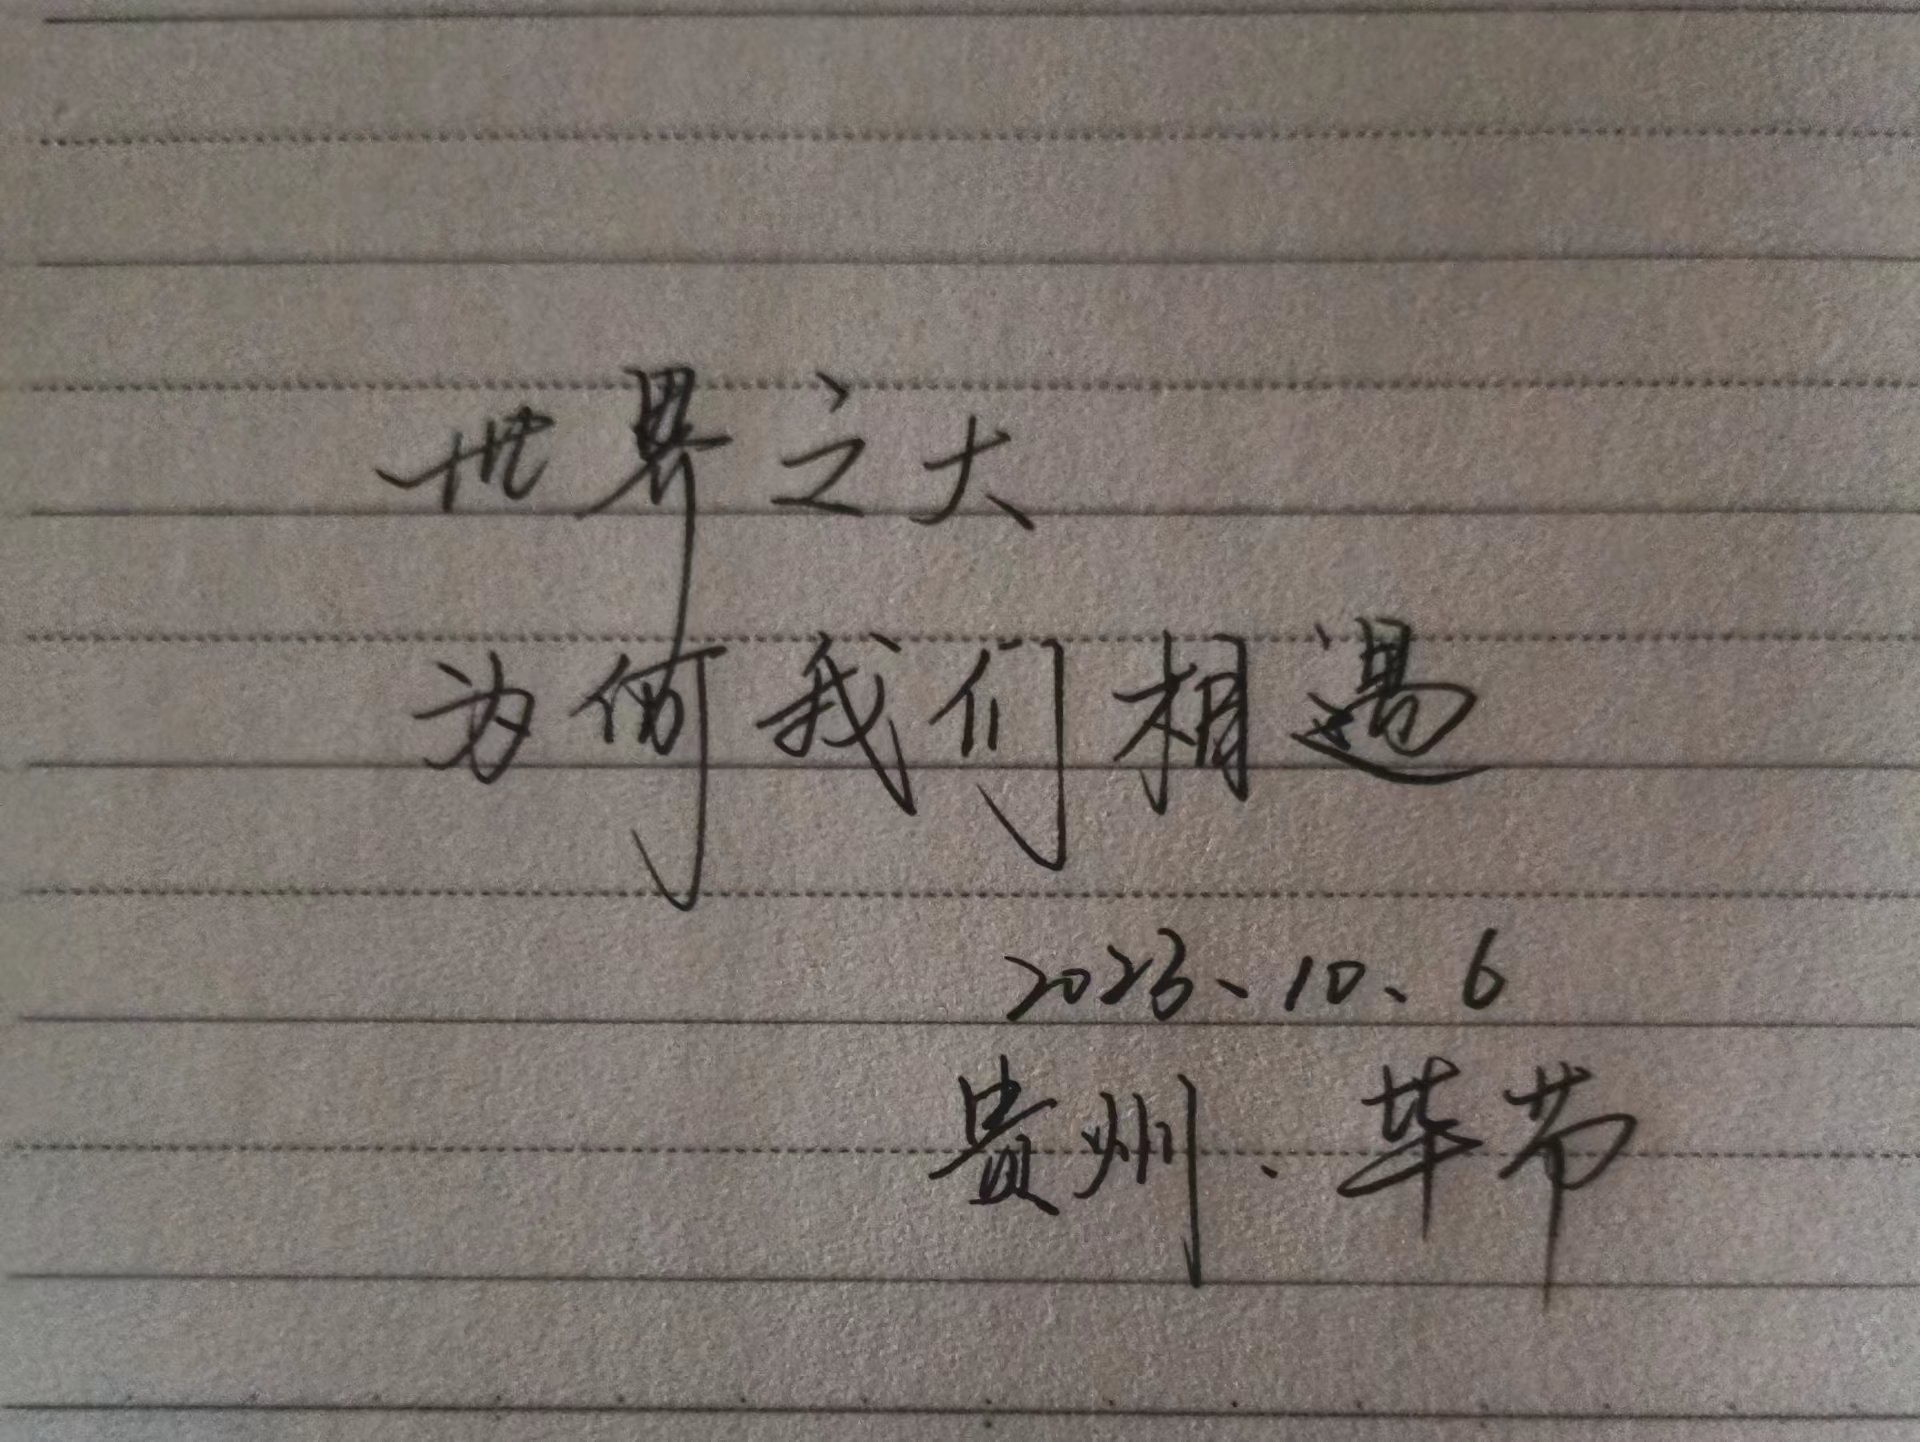 世界之大
为何我们相遇
2023、10、6
贵州、毕节